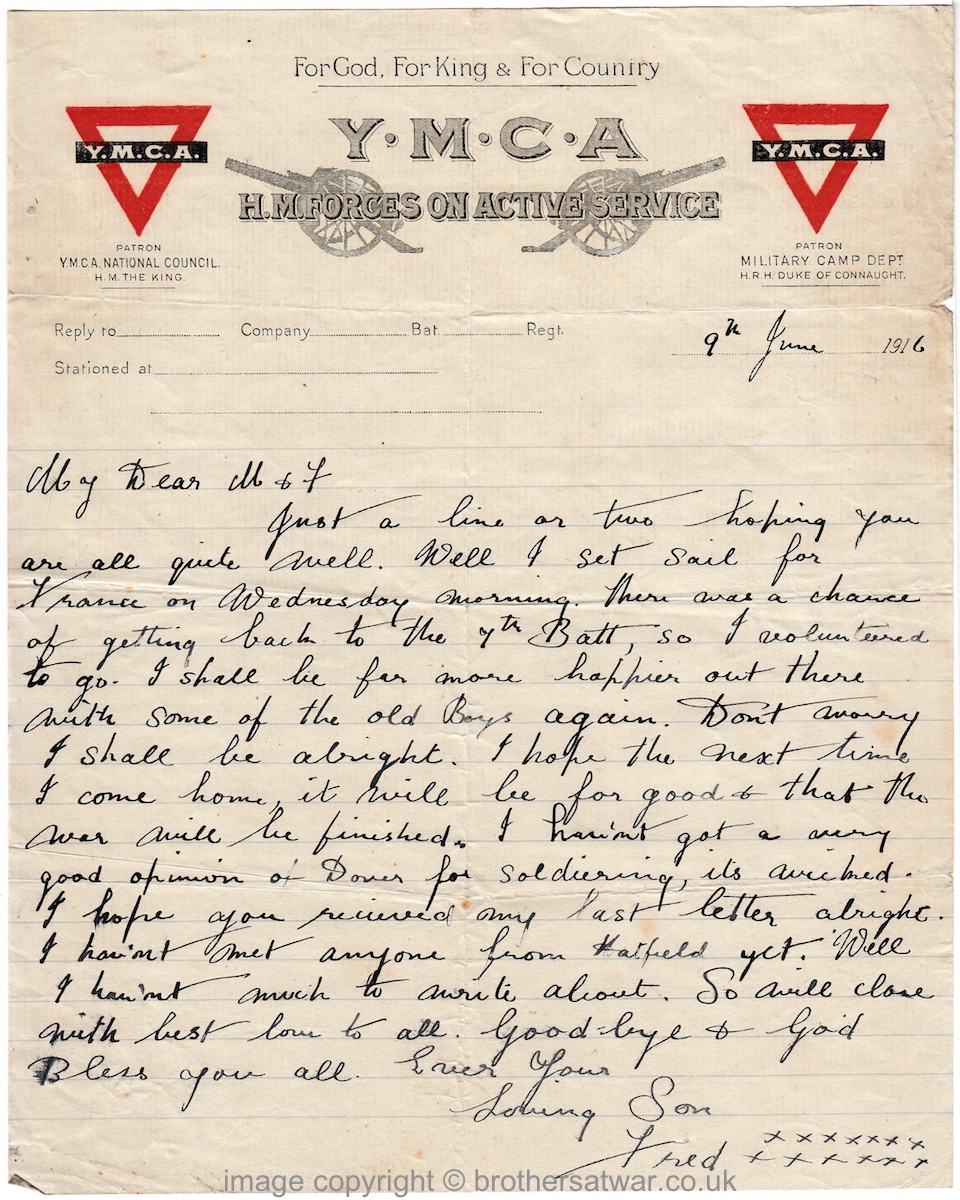 For God, For King & For Country
Y·M·C·A
H.M. FORCES ON ACTIVE SERVICE
Y.M.C.A.
PATRON
Y.M.C.A. NATIONAL COUNCIL.
H.M. THE KING.
Y.M.C.A.
PATRON
MILITARY CAMP DEPT
H.R.H. DUKE OF CONNAUGHT.
Reply to Company Bat. Regt.
Stationed at
9th June 1916
My Dear M & F
Just a line or two hoping you
are all quite well. Well I set sail for
France on Wednesday morning. There was a chance
of getting back to the 7th Batt, so I volunteered
to go. I shall be far more happier out there
with some of the old Boys again. Don't worry
I shall be alright. I hope the next time
I come home, it will be for good & that the
war will be finished. I havn't got a very
good opinion of Dover for soldiering, its wicked.
I hope you recieved my last letter alright.
I hav'nt met anyone from Hatfield yet. Well
I hav'nt much to write about. So will close
with best love to all. Good-bye & God
Bless you all. Ever Your
Loving Son
Fred xxxxxxx
xxxxxxx
image copyright © brothersatwar.co.uk